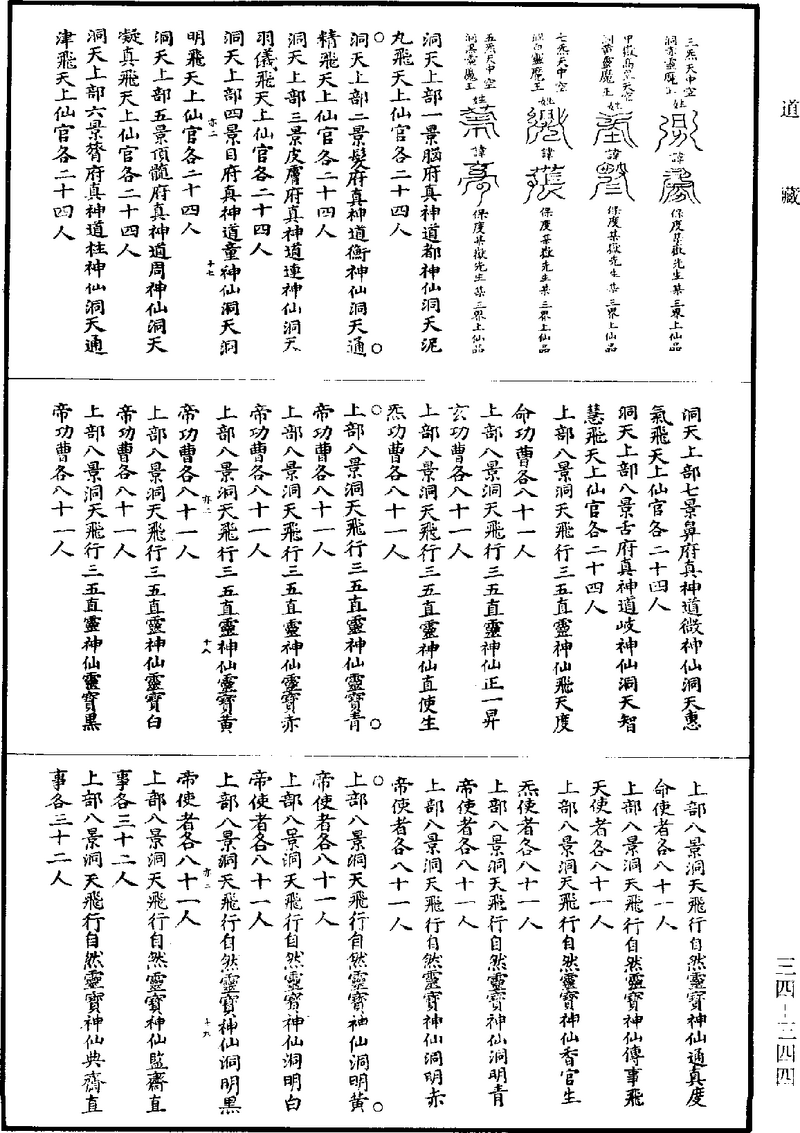 道藏
三炁天中空
洞赤靈魔王 姓 諱 保度某嶽先生某三界上仙品
洞黃靈魔王 姓 諱 保度某嶽先生某三界上仙品
七炁天中空
洞白靈魔王 姓 諱 保度某嶽先生某三界上仙品
五炁天中空
洞黑靈魔王 姓 諱 保度某嶽先生某三界上仙品
洞天上部一景腦府真神道都神仙洞天泥
丸飛天上仙官各二十四人
洞天上部二景髮府真神道衡神仙洞天通
精飛天上仙官各二十四人
洞天上部三景皮膚府真神道連神仙洞天
羽儀飛天上仙官各二十四人
洞天上部四景目府真神道童神仙洞天洞
明飛天上仙官各二十四人
亦二 十七
洞天上部五景頂髓府真神道周神仙洞天
凝真飛天上仙官各二十四人
洞天上部六景膂府真神道柱神仙洞天通
津飛天上仙官各二十四人
洞天上部七景鼻府真神道微神仙洞天惠
氣飛天上仙官各二十四人
洞天上部八景舌府真神道岐神仙洞天智
慧飛天上仙官各二十四人
上部八景洞天飛行三五直靈神仙飛天度
命功曹各八十一人
上部八景洞天飛行三五直靈神仙正一昇
玄功曹各八十一人
上部八景洞天飛行三五直靈神仙直使生
炁功曹各八十一人
上部八景洞天飛行三五直靈神仙靈寶青
帝功曹各八十一人
上部八景洞天飛行三五直靈神仙靈寶赤
帝功曹各八十一人
上部八景洞天飛行三五直靈神仙靈寶黃
帝功曹各八十一人
亦二 十八
上部八景洞天飛行三五直靈神仙靈寶白
帝功曹各八十一人
上部八景洞天飛行三五直靈神仙靈寶黑
帝功曹各八十一人
上部八景洞天飛行自然靈寶神仙通真度
命使者各八十一人
上部八景洞天飛行自然靈寶神仙傳事飛
天使者各八十一人
上部八景洞天飛行自然靈寶神仙香官生
炁使者各八十一人
上部八景洞天飛行自然靈寶神仙洞明青
帝使者各八十一人
上部八景洞天飛行自然靈寶神仙洞明赤
帝使者各八十一人
上部八景洞天飛行自然靈寶神仙洞明黃
帝使者各八十一人
上部八景洞天飛行自然靈寶神仙洞明白
帝使者各八十一人
上部八景洞天飛行自然靈寶神仙洞明黑
帝使者各八十一人
亦二 十九
上部八景洞天飛行自然靈寶神仙監齋直
事各三十二人
上部八景洞天飛行自然靈寶神仙典齋直
事各三十二人
三四-三四四